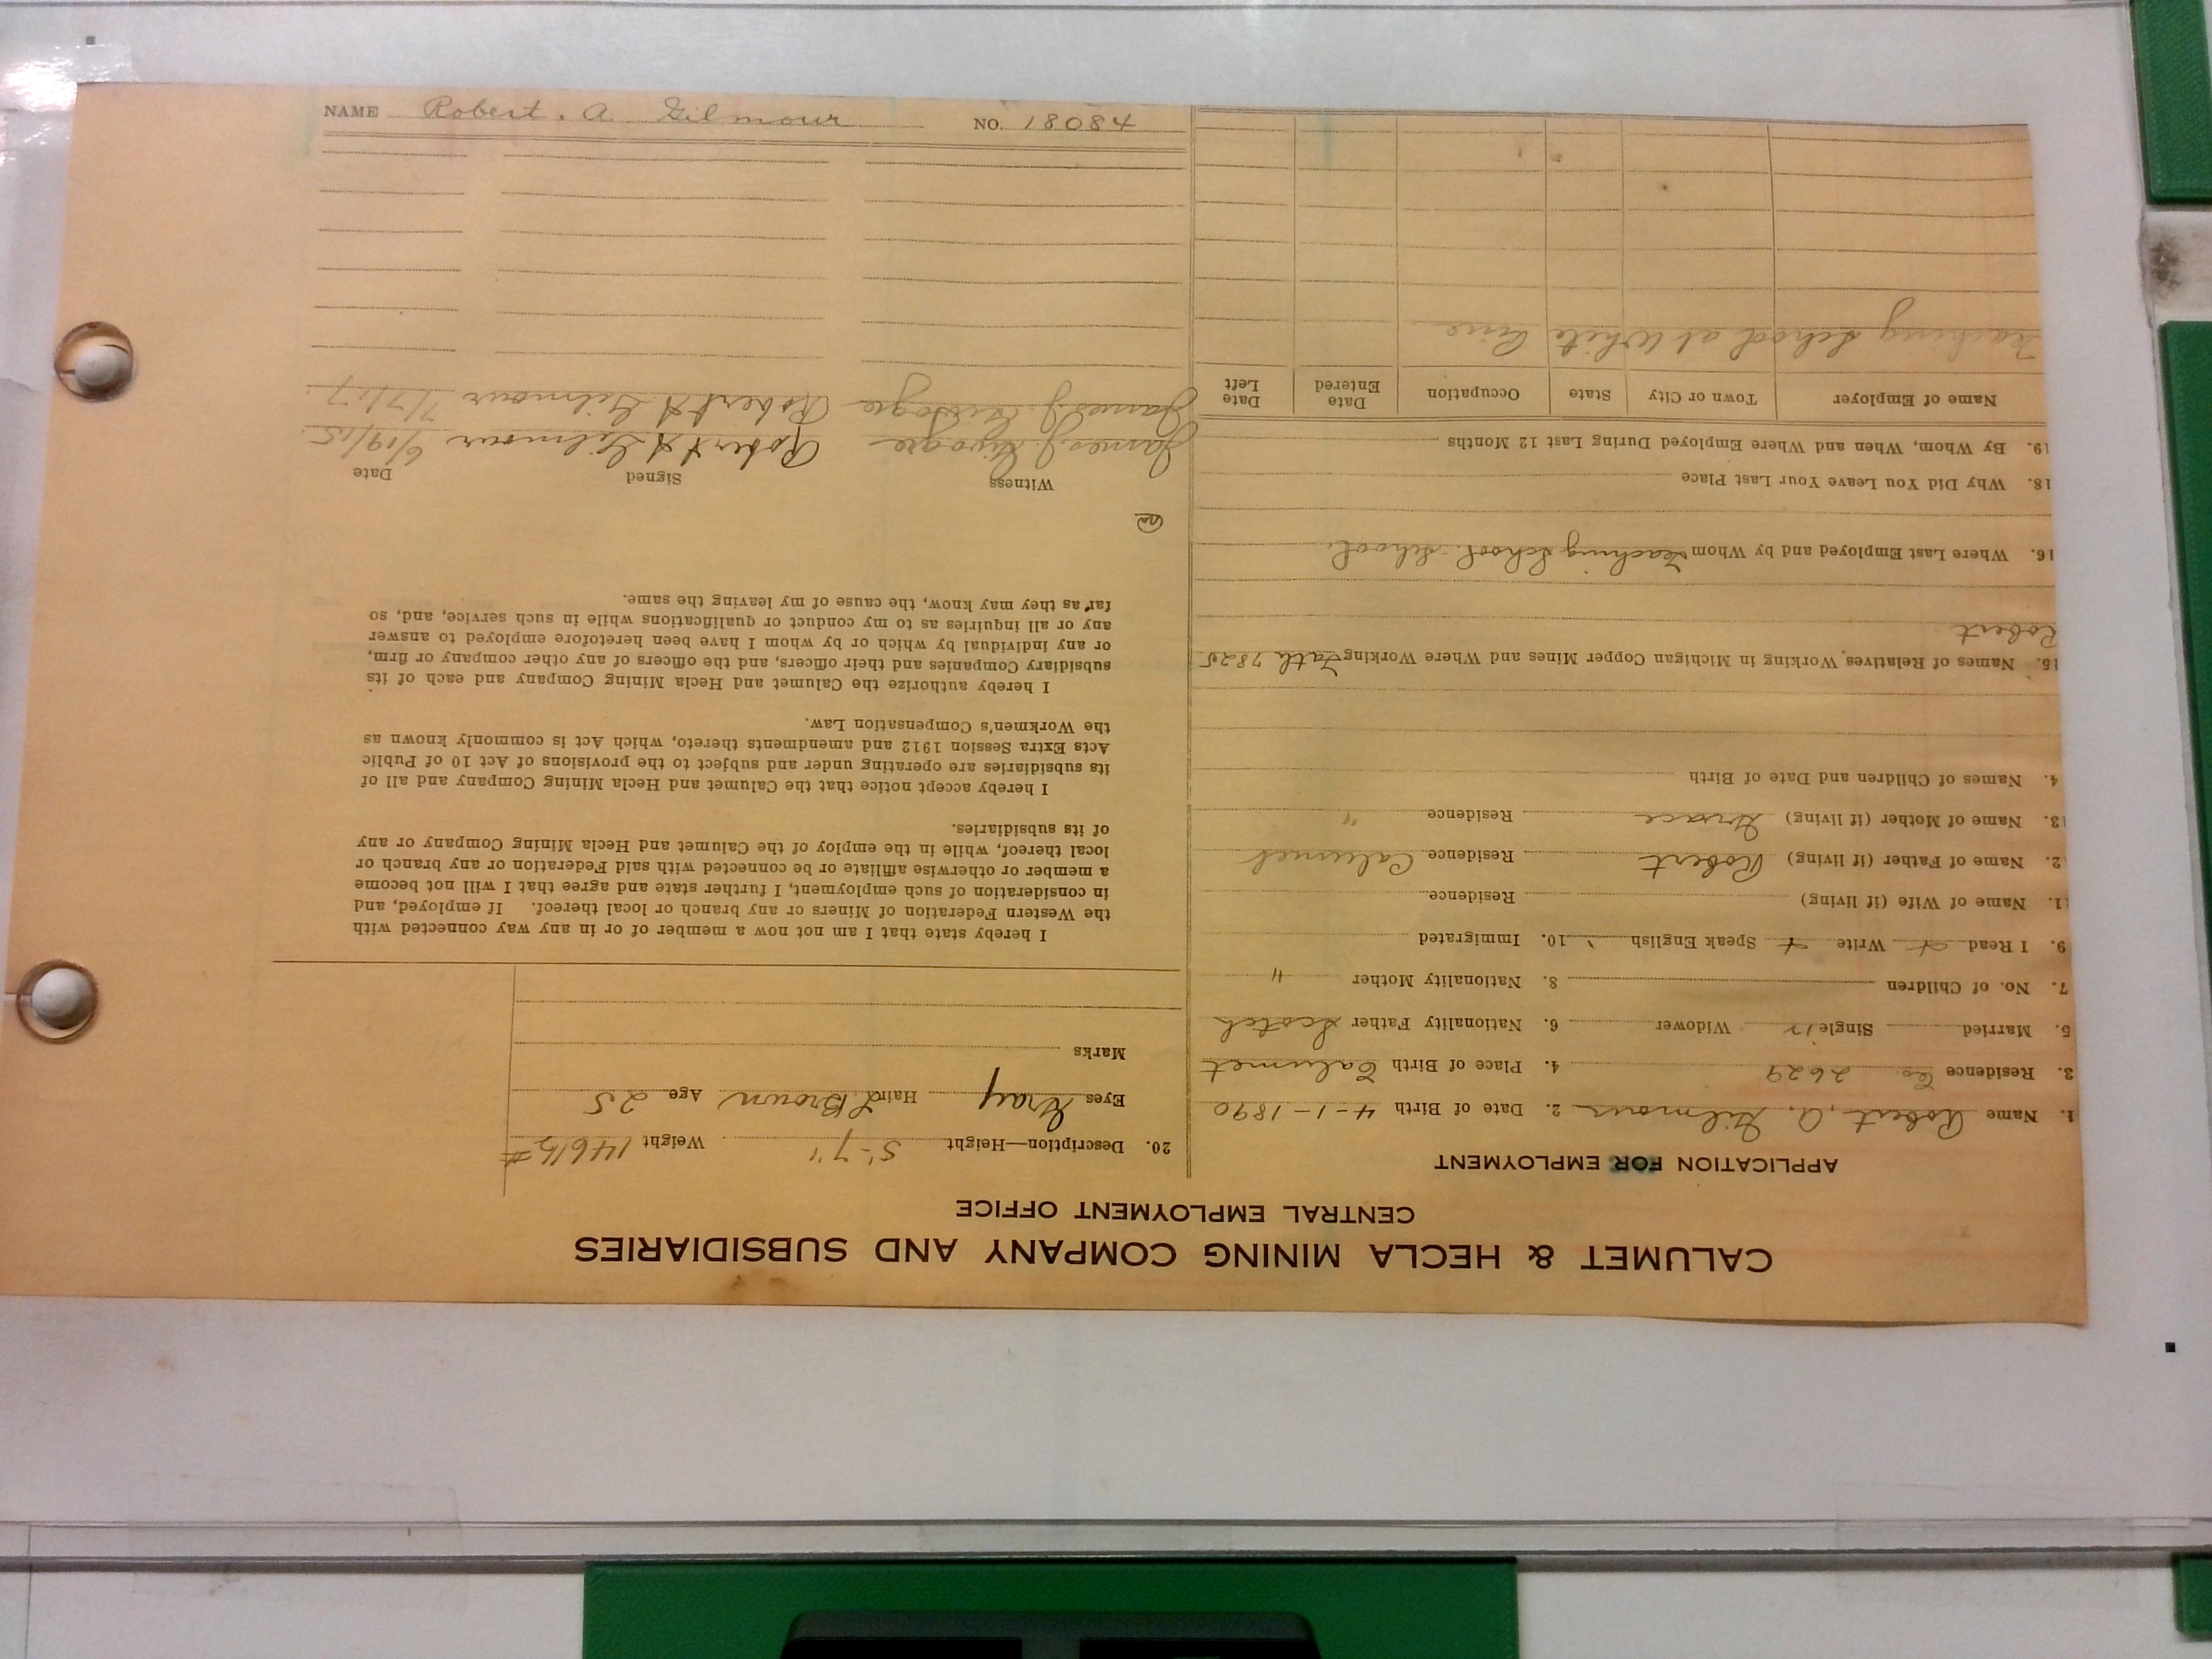 CALUMET & HECLA MINING COMPANY AND SUBSIDIARIES
CENTRAL EMPLOYMENT OFFICE
APPLICATION FOR EMPLOYMENT
1. Name Robert, A, Gilmour 2. Date of Birth 4-1-1890
3. Residence Co 2629 4. Place of Birth Calumet
5. Married Single Widower 6. Nationality Father Scotch
7. No. of Children 8. Nationality Mother "
9. I Read Write Speak English 10. Immigrated
11. Name of Wife (if living) Residence
2. Name of Father (if living) Robert Residence Calumet
13. Name of Mother (if living) Grace Residence "
4. Names of Children and Date of Birth
15. Names of Relatives Working in Michigan Copper Mines and Where Working Fath 7825
Robert
16. Where Last Employed and by Whom Teaching School. School.
18. Why Did You Leave Your Last Place
19. By Whom, When and Where Employed During Last 12 Months
Name of Employer Town or City State Occupation Date Entered Date Left
Teaching School at White Pine
20. Description—Height 5'-7" Weight 146 lbs #
Eyes Gray Hair L Brown Age 25
Marks
I hereby state that I am not now a member of or in any way connected with
the Western Federation of Miners or any branch or local thereof. If employed, and
in consideration of such employment, I further state and agree that I will not become
a member or otherwise affiliate or be connected with said Federation or any branch or
local thereof, while in the employ of the Calumet and Hecla Mining Company or any
of its subsidiaries.
I hereby accept notice that the Calumet and Hecla Mining Company and all of
its subsidiaries are operating under and subject to the provisions of Act 10 of Public
Acts Extra Session 1912 and amendments thereto, which Act is commonly known as
the Workmen's Compensation Law.
I hereby authorize the Calumet and Hecla Mining Company and each of its
subsidiary Companies and their officers, and the officers of any other company or firm,
or any individual by which or by whom I have been heretofore employed to answer
any or all inquiries as to my conduct or qualifications while in such service, and, so
far as they may know, the cause of my leaving the same.
Witness Signed Date
James J. Robert A Gilmour 6/19/15.
James J. Robert A Gilmour 7/7/17.
NAME Robert. A. Gilmour NO. 18084